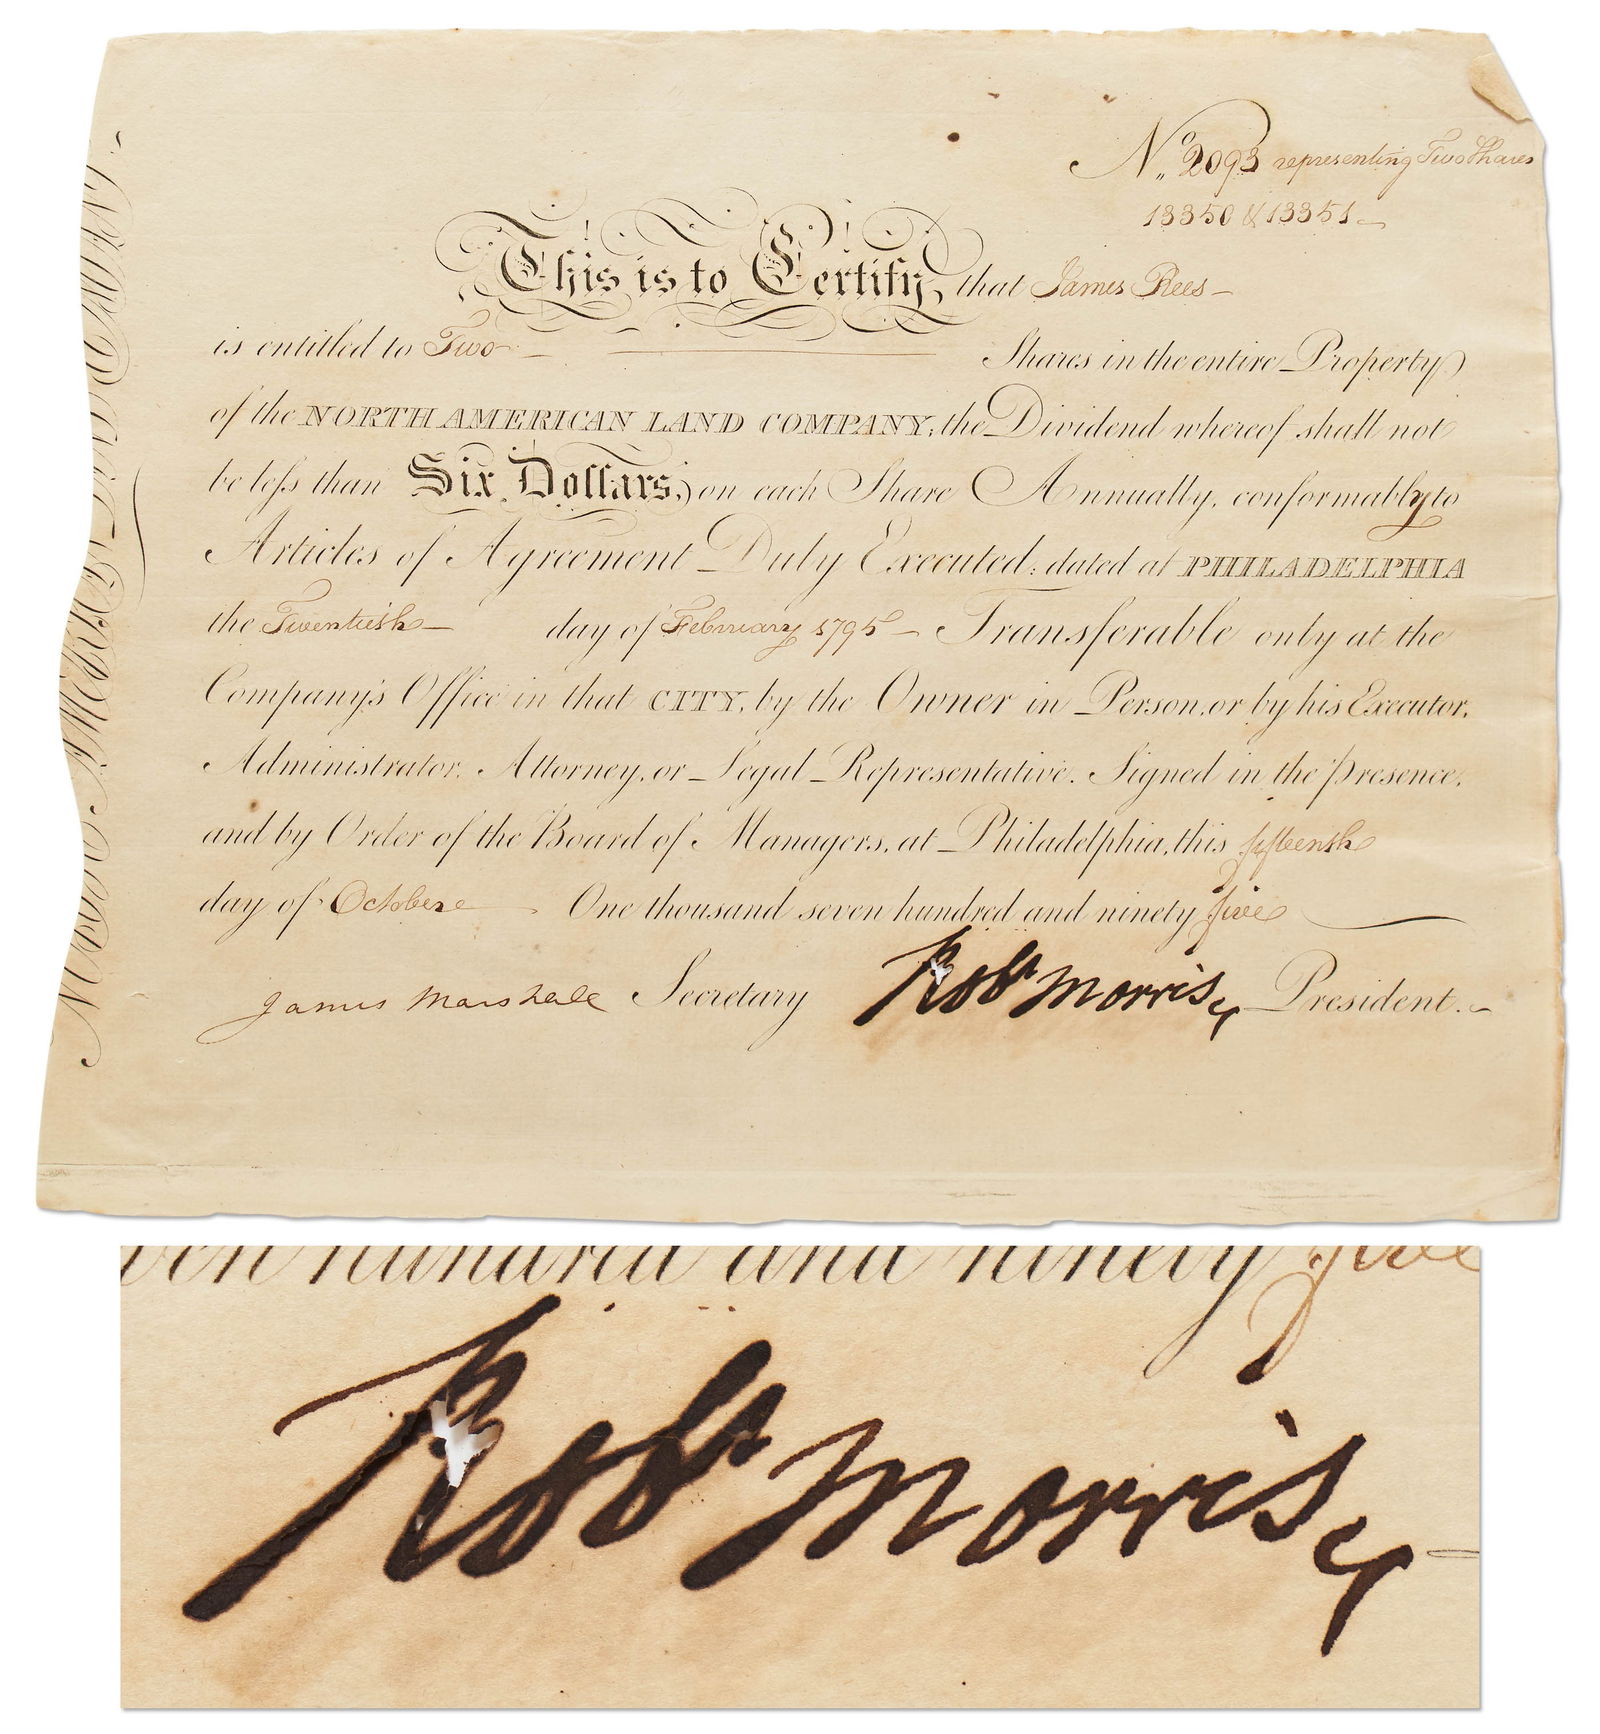 No. 2093 representing Two Shares
13350 & 13351
This is to Certify, that James Rees
is entitled to Two Shares in the entire Property
of the NORTH AMERICAN LAND COMPANY; the Dividend whereof shall not
be less than Six Dollars, on each Share Annually, conformably to
Articles of Agreement Duly Executed: dated at PHILADELPHIA
the Twentieth day of February 1795 Transferable only at the
Company's Office in that CITY, by the Owner in Person, or by his Executor,
Administrator, Attorney, or Legal Representative. Signed in the presence,
and by Order of the Board of Managers, at Philadelphia, this fifteenth
day of October One thousand seven hundred and ninety five
James Marshall Secretary Robt Morris President.
ven hundred and ninety five
Robt Morris